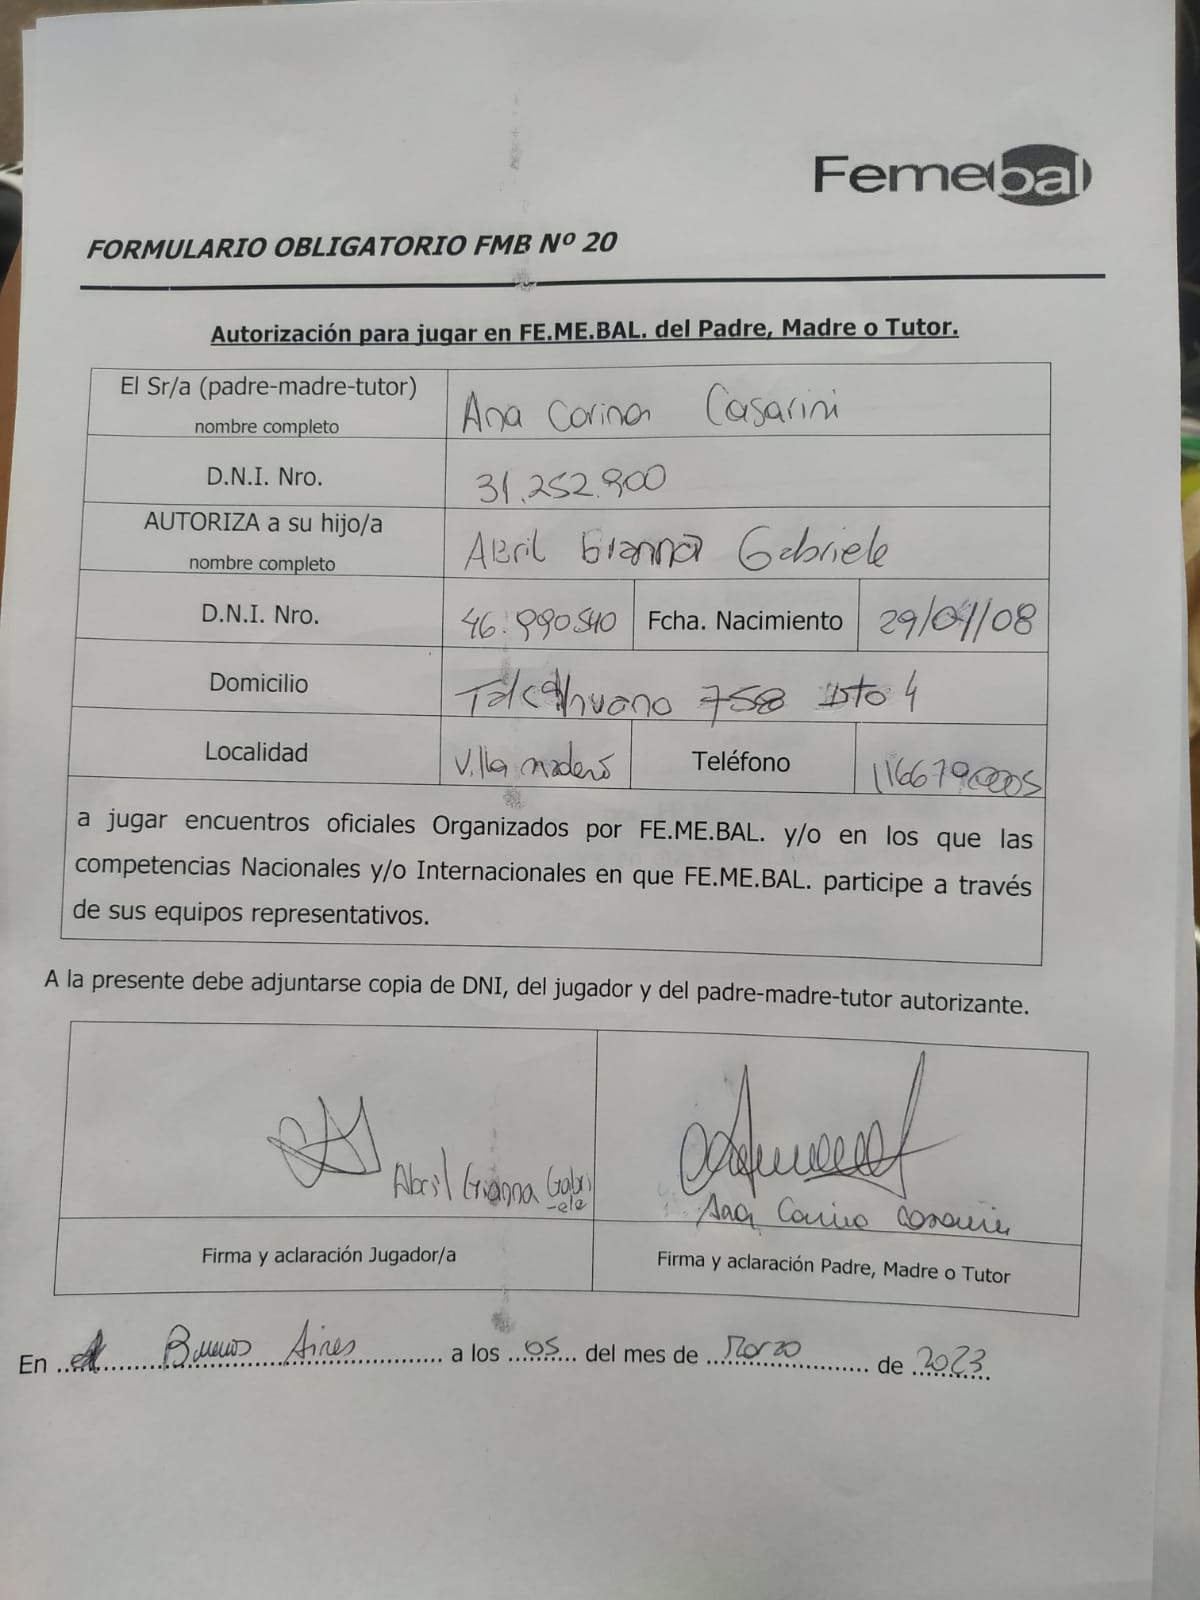 Femebal
FORMULARIO OBLIGATORIO FMB Nº 20
Autorización para jugar en FE.ME.BAL. del Padre, Madre o Tutor.
El Sr/a (padre-madre-tutor)
nombre completo
Ana Corina Casarini
D.N.I. Nro.
31.252.900
AUTORIZA a su hijo/a
nombre completo
Abril Gianna Gabriele
D.N.I. Nro.
46.990540
Fcha. Nacimiento
29/07/08
Domicilio
Talcahuano 758 Dto 4
Localidad
Villa madero
Teléfono
a jugar encuentros oficiales Organizados por FE.ME.BAL. y/o en los que las
competencias Nacionales y/o Internacionales en que FE.ME.BAL. participe a través
de sus equipos representativos.
A la presente debe adjuntarse copia de DNI, del jugador y del padre-madre-tutor autorizante.
Abril Gianna Gabri
-ele
Ana Corina Casarini
Firma y aclaración Jugador/a
Firma y aclaración Padre, Madre o Tutor
En Buenos Aires a los 05 del mes de Marzo de 2023